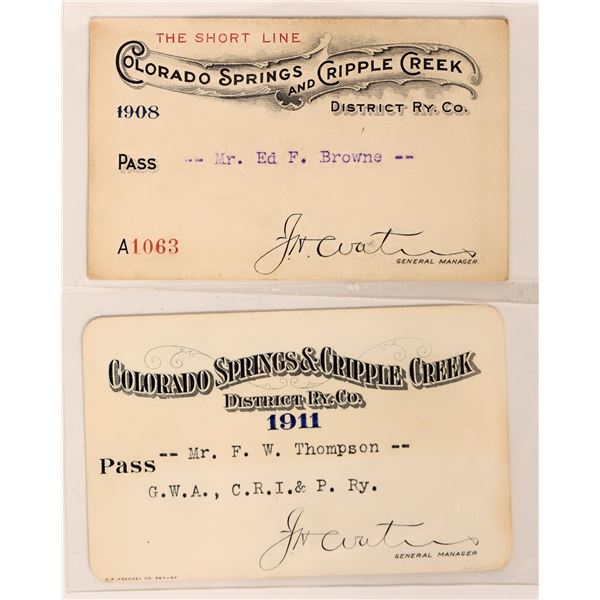 THE SHORT LINE
COLORADO SPRINGS AND CRIPPLE CREEK
DISTRICT RY. CO.
1908
PASS -- Mr. Ed F. Browne --
A1063
J.H. Waters
GENERAL MANAGER.
COLORADO SPRINGS & CRIPPLE CREEK
DISTRICT RY. CO.
1911
Pass -- Mr. F. W. Thompson --
G.W.A., C.R.I.& P. Ry.
JH Waters
GENERAL MANAGER